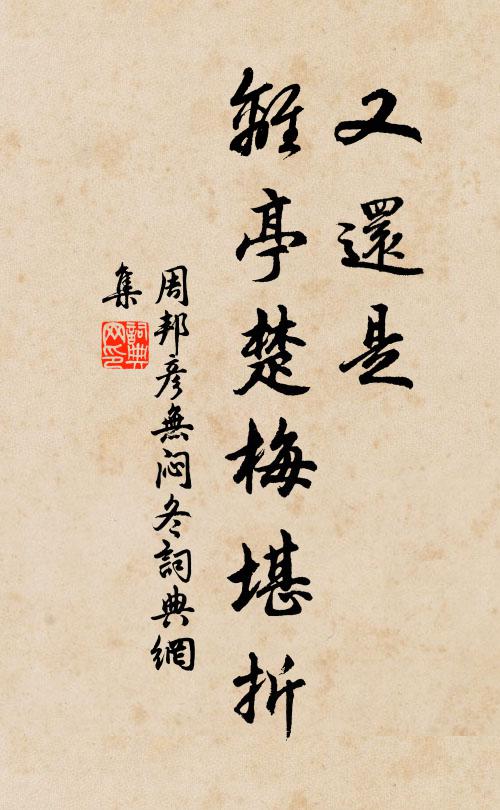 又還是
離亭楚梅堪折
周邦彥無悶冬詞典網
集
詞典
网印